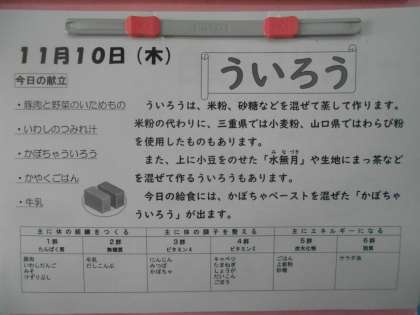 11月10日（木）
今日の献立
・豚肉と野菜のいためもの
・いわしのつみれ汁
・かぼちゃういろう
・かやくごはん
・牛乳
ういろう
ういろうは、米粉、砂糖などを混ぜて蒸して作ります。
米粉の代わりに、三重県では小麦粉、山口県ではわらび粉
を使用したものもあります。
また、上に小豆をのせた「水無月」や生地にまっ茶など
みなづき
を混ぜて作るういろうもあります。
今日の給食には、かぼちゃペーストを混ぜた「かぼちゃ
ういろう」が出ます。
主に体の組織をつくる
主に体の調子を整える
主にエネルギーになる
1群
2群
3群
4群
5群
6群
たんぱく質
無機質
ビタミンA
ビタミンC
炭水化物
脂質
豚肉
いわしだんご
みそ
けずりぶし
牛乳
だしこんぶ
にんじん
みつば
かぼちゃ
キャベツ
たまねぎ
しょうが
だいこん
ごぼう
ごはん
上新粉
砂糖
サラダ油